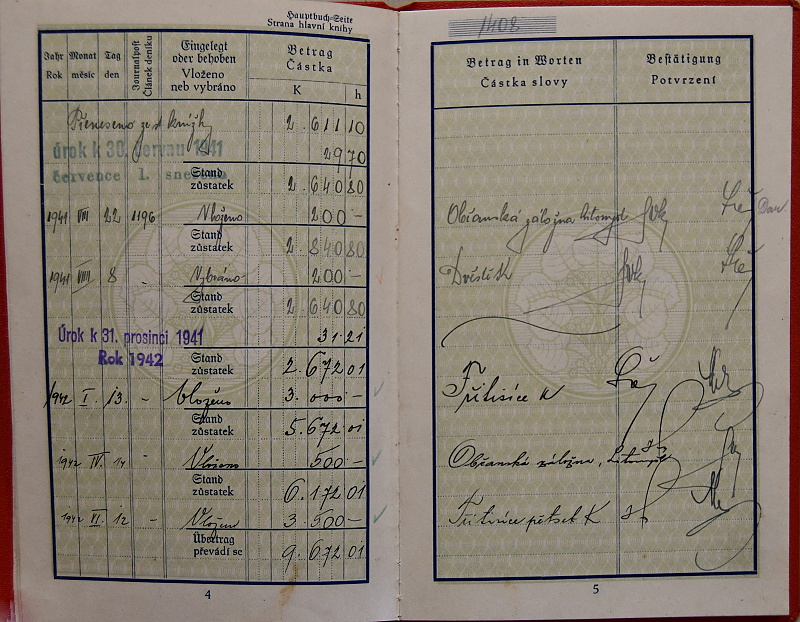 Hauptbuch-Seite
Strana hlavní knihy
Jahr Monat Tag Journalpost Eingelegt oder behoben Betrag
Rok měsíc den Článek deníku Vloženo neb vybráno Částka
K h
Přeneseno ze st. knížky 2.611 10
Úrok k 30. červnu 1941 29 70
července 1. Stand zůstatek 2.640 80
1941 VII 22 1196 Vloženo 200 -
Stand zůstatek 2.840 80
1941 VIII 8 - Vybráno 200 -
Stand zůstatek 2.640 80
Úrok k 31. prosinci 1941 31 21
Rok 1942 Stand zůstatek 2.672 01
1942 I. 13. - Vloženo 3.000 -
Stand zůstatek 5.672 01
1942 IV. 14 - Vloženo 500 -
Stand zůstatek 6.172 01
1942 VI. 12 - Vloženo 3.500 -
Übertrag převádí se 9.672 01
4
1408
Betrag in Worten Bestätigung
Částka slovy Potvrzení
Občanská záložna Litomyšl
Dvěstě K
Třitisíce K
Občanská záložna, Litomyšl
Třitisíce pětset K
5